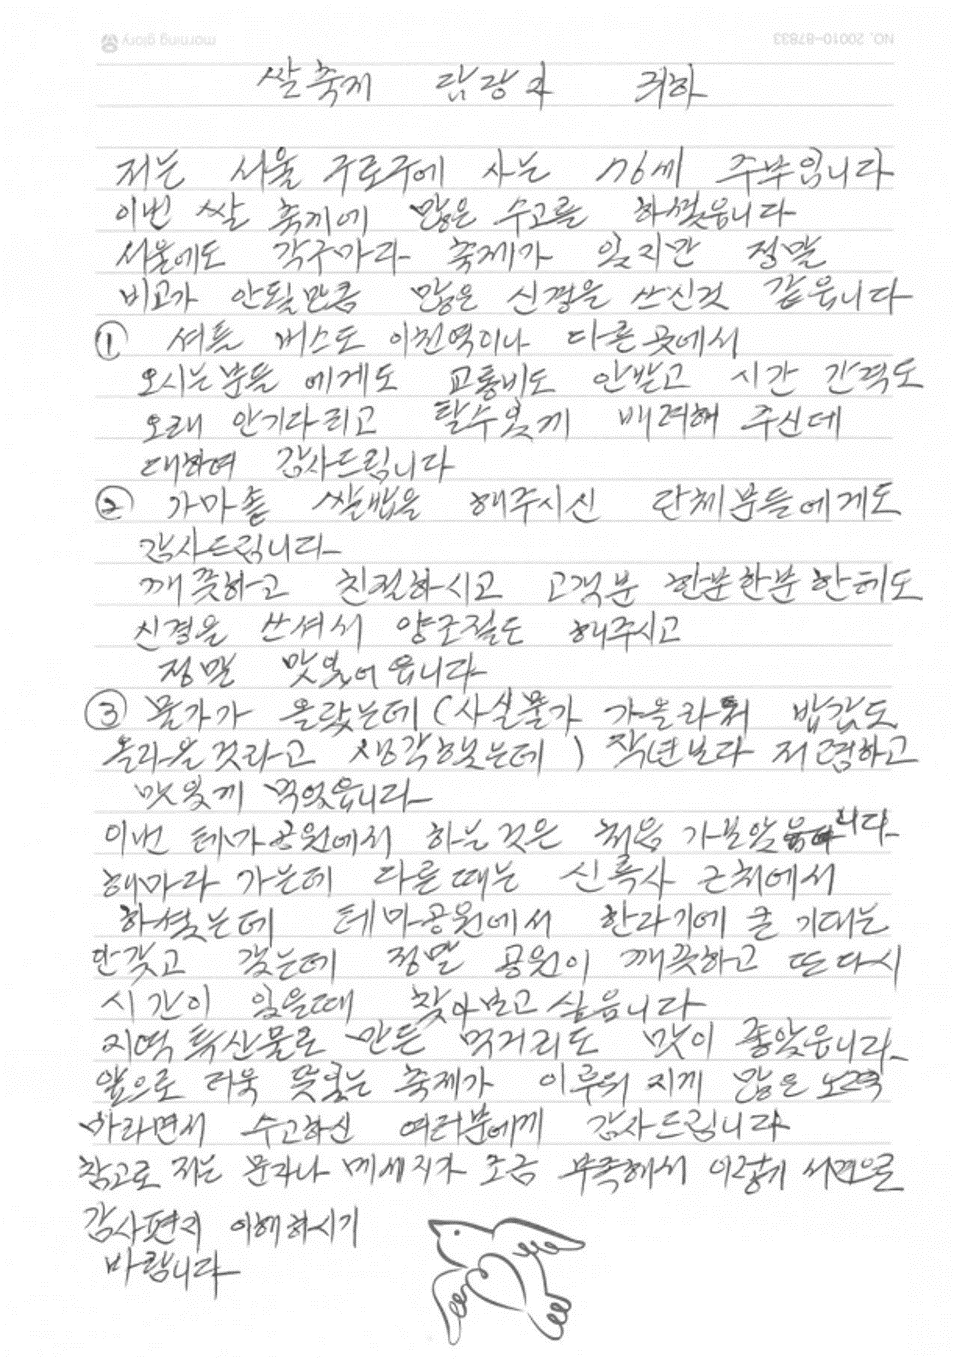 NO. 20010-87833
morning glory
쌀축제 담당자 귀하
저는 서울 구로구에 사는 76세 주부입니다
이번 쌀 축제에 많은 수고를 하셨읍니다
서울에도 각구마다 축제가 있지만 정말
비교가 안될만큼 많은 신경을 쓰신것 같읍니다
① 셔틀 버스도 이천역이나 다른 곳에서
오시는분들 에게도 교통비도 안받고 시간 간격도
오래 안기다리고 탈수있게 배려해 주신데
대하여 감사드립니다
② 가마솥 쌀밥을 해주시신 단체분들에게도
감사드립니다
깨끗하고 친절하시고 고객분 한분한분한테도
신경을 쓰셔서 양조절도 해주시고
정말 맛있어읍니다
③ 물가가 올랐는데 (사실물가 가올라서 밥값도
올라을것라고 생각했는데) 작년보다 저렴하고
맛있게 먹었읍니다
이번 테마공원에서 하는것은 처음 가보았읍니다
해마다 가는데 다른때는 신륵사 근처에서
하셨는데 테마공원에서 한라기에 큰 기대는
안갖고 갔는데 정말 공원이 깨끗하고 또다시
시간이 있을때 찾아보고 싶읍니다
지역 특산물로 만든 먹거리도 맛이 좋았읍니다
앞으로 더욱 뜻있는 축제가 이루워 지게 많은 노력
바라면서 수고하신 여러분에게 감사드립니다
참고로 저는 문자나 메세지가 조금 부족해서 이렇게 서면으로
감사편지 이해하시기
바랍니다